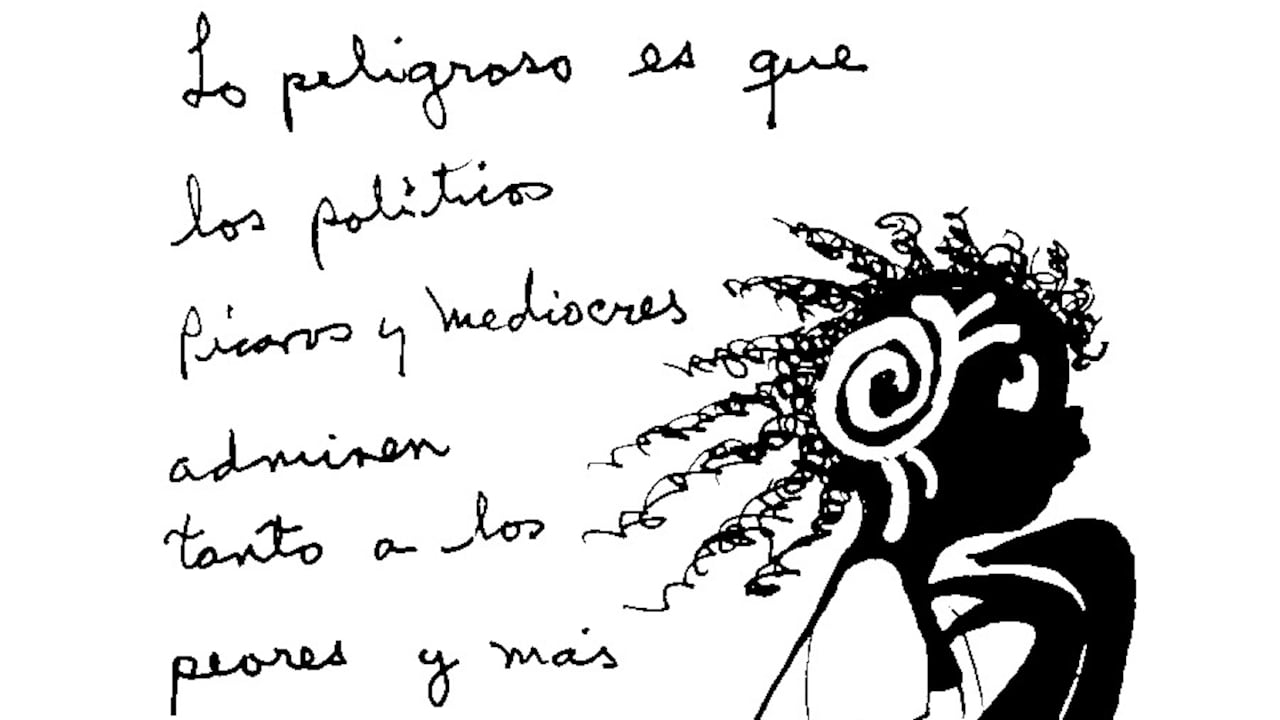 Lo peligroso es que
los políticos
pícaros y mediocres
admiren
tanto a los
peores y más